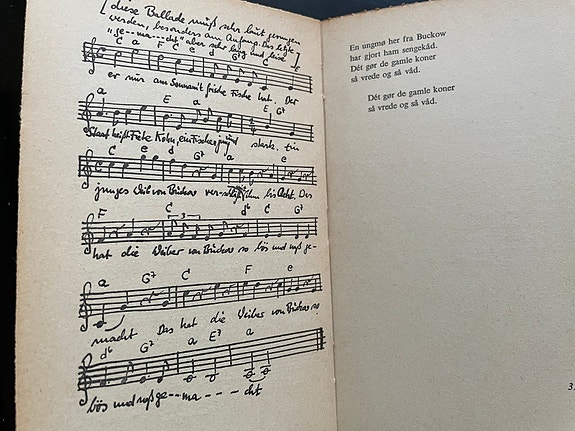 [diese Ballade muß sehr laut gesungen
werden, besonders am Anfang. Das letzte
„ge--ma--cht" aber sehr lang und leise]
C a F C G e
er nur am Sonnabend frische Fische hat. Der
a E a E G⁷
Staat heißt Fiete Kohn, ein Fischer jung und stark. Ein
C e d G⁷ a e
junges Weib von Buckow ver- ihm bis Acht. Das
F C d⁶ C G⁷
hat die Weiber von Buckow so bös und naß ge-
a G⁷ C F e
macht Das hat die Weiber von Buckow so
d⁶ G⁷ a E⁷ a
bös und naß ge--ma----cht
En ungmø her fra Buckow
har gjort ham sengekåd.
Dét gør de gamle koner
så vrede og så våd.
Dét gør de gamle koner
så vrede og så våd.
3.